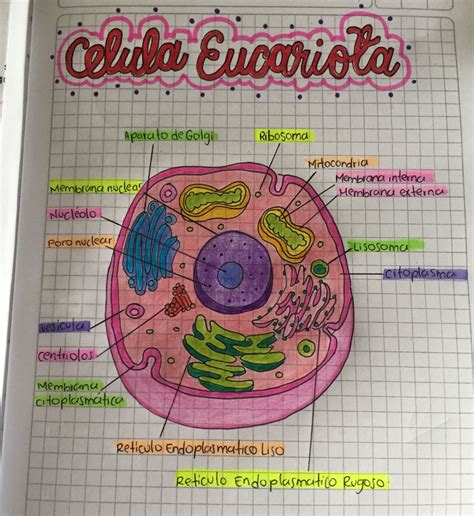 Celula Eucariota
Aparato de Golgi
Ribosoma
Mitocondria
Membrana interna
Membrana externa
Membrana nuclear
Nucléolo
Poro nuclear
Lisosoma
citoplasma
vesicula
centriolos
Membrana
citoplasmatica
Reticulo Endoplasmatico Liso
Reticulo Endoplasmatico Rugoso.